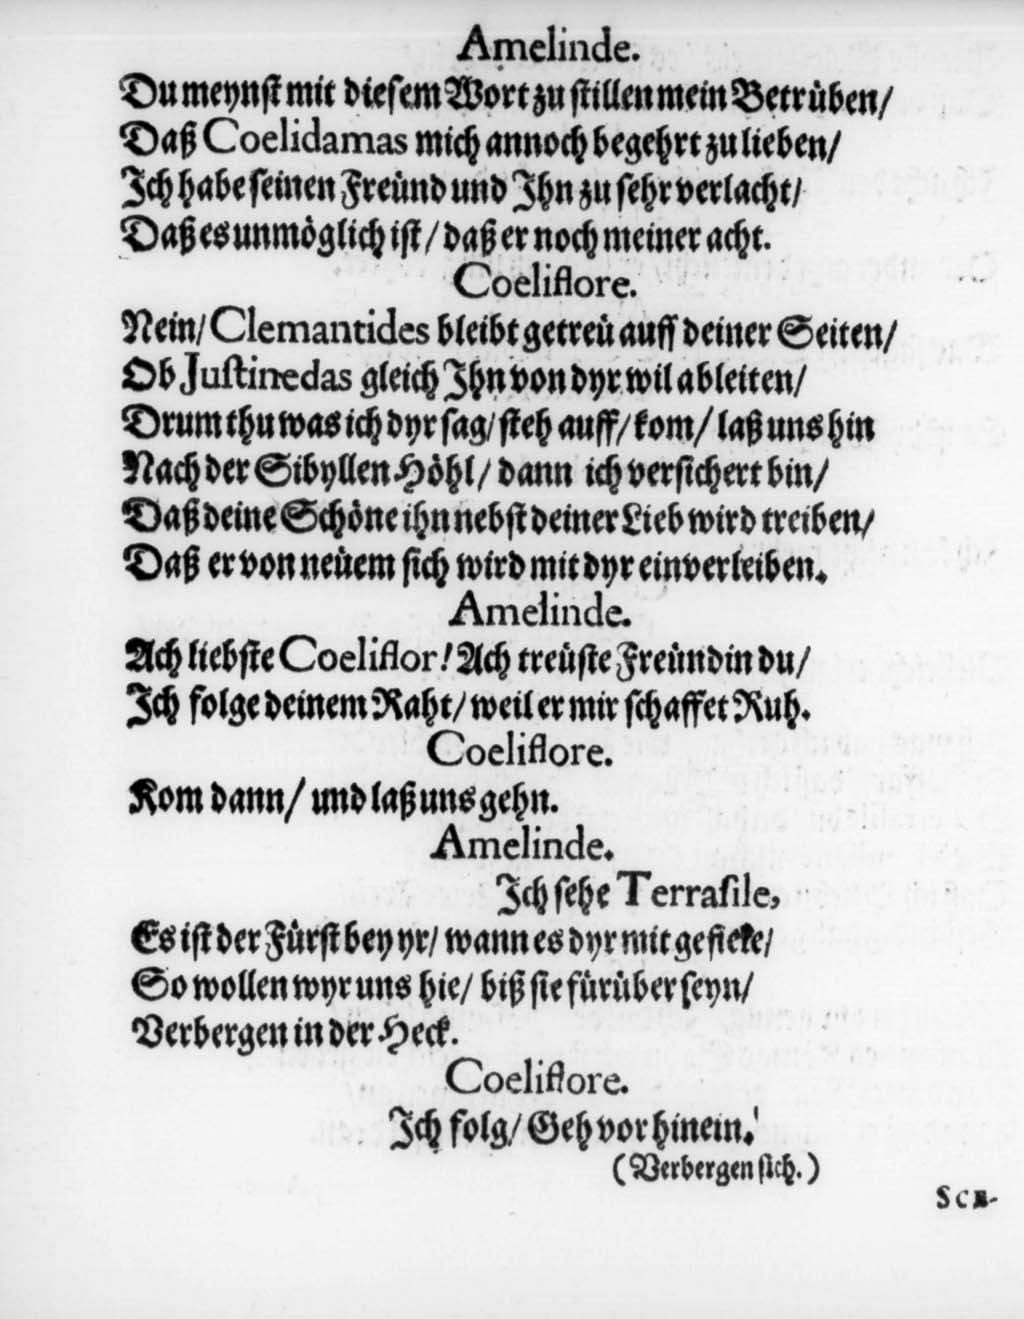 Amelinde.
Du meynst mit diesem Wort zu stillen mein Betrüben/
Daß Coelidamas mich annoch begehrt zu lieben/
Ich habe seinen Freünd und Ihn zu sehr verlacht/
Daß es unmöglich ist/ daß er noch meiner acht.
Coeliflore.
Nein/ Clemantides bleibt getreü auff deiner Seiten/
Ob Justinedas gleich Ihn von dyr wil ableiten/
Drum thu was ich dyr sag/ steh auff/ kom/ laß uns hin
Nach der Sibyllen Höhl/ dann ich versichert bin/
Daß deine Schöne ihn nebst deiner Lieb wird treiben/
Daß er von neüem sich wird mit dyr einverleiben.
Amelinde.
Ach liebste Coeliflor! Ach treüste Freündin du/
Ich folge deinem Raht/ weil er mir schaffet Ruh.
Coeliflore.
Kom dann/ und laß uns gehn.
Amelinde.
Ich sehe Terrasile,
Es ist der Fürst bey yr/ wann es dyr mit gefiele/
So wollen wyr uns hie/ biß sie fürüber seyn/
Verbergen in der Heck.
Coeliflore.
Ich folg/ Geh vor hinein.
(Verbergen sich.)
Sce-